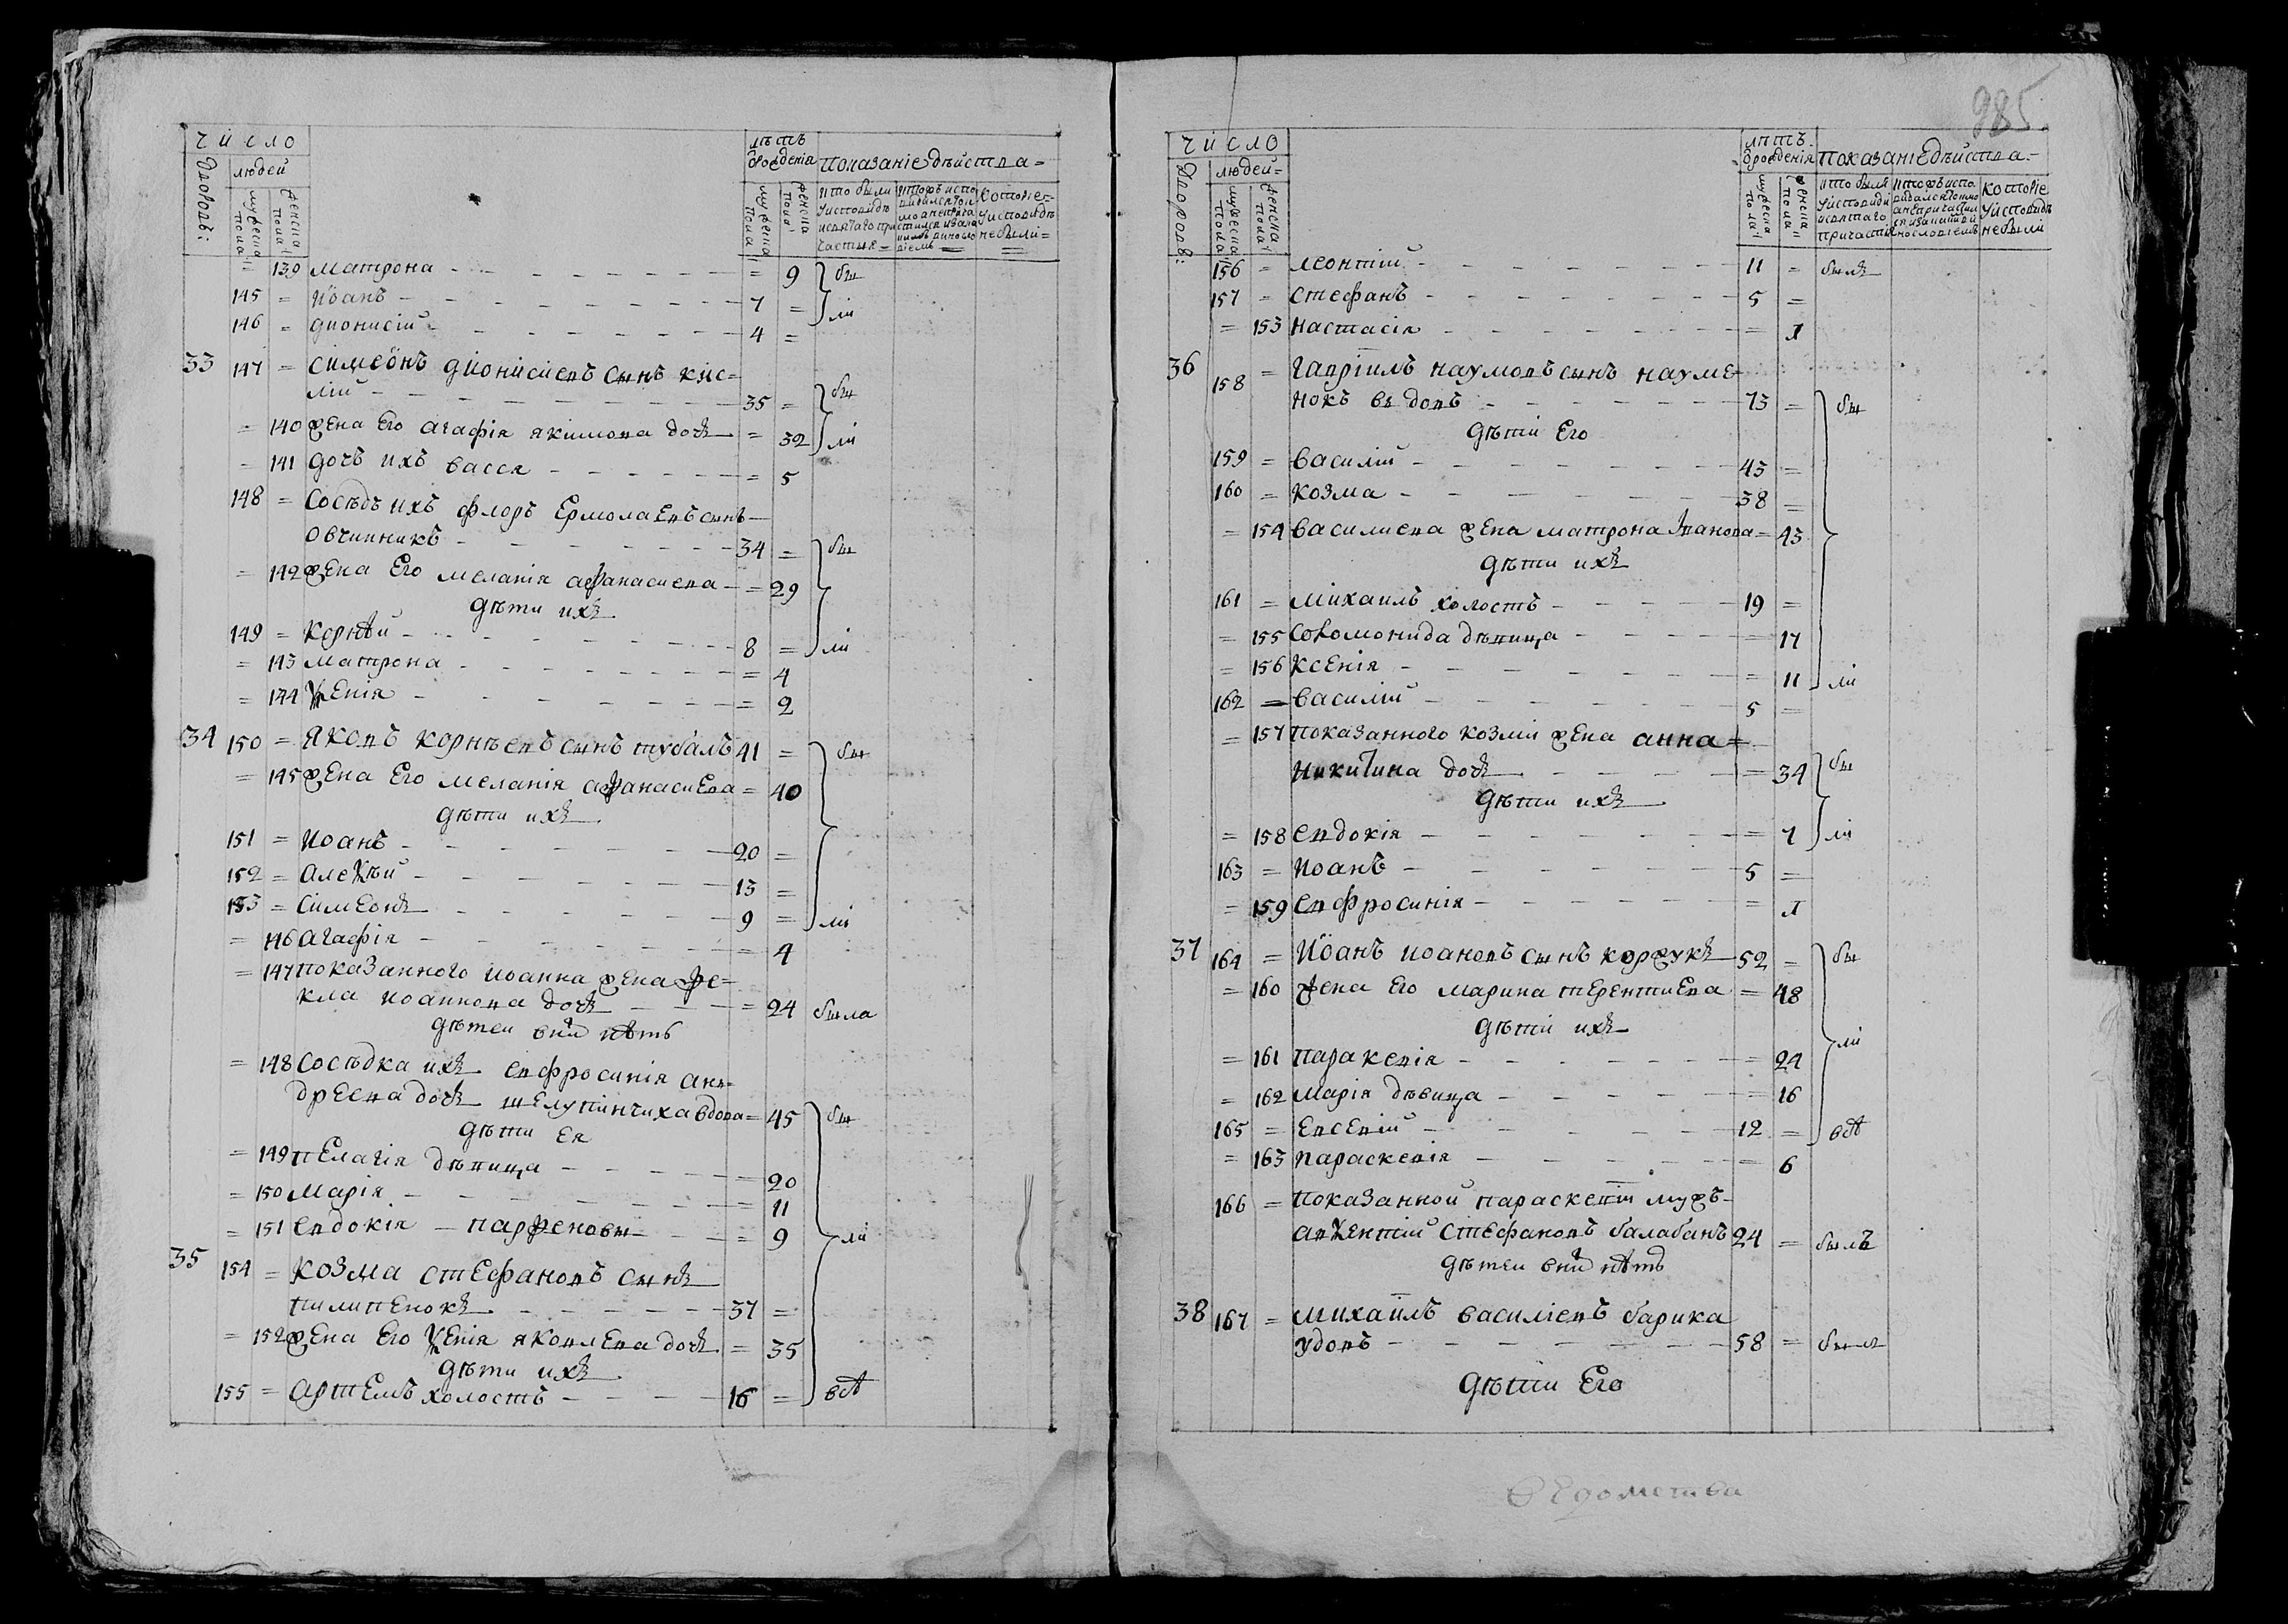 число
лѣтъ
людей
ѿрожденія показаніе дѣиства
Дворовъ:
мужеска пола
женска пола
мужеска пола
женска пола
кто были
уисповѣди
исвятаго при
частія
которіе
уисповѣди
небыли
= 139 матрона = 9 бы
145 = Иоанъ 7 = ли
146 = дионисій 4 =
33 147 = Симеонъ дионисиевъ сынъ кис=
лій 35 = бы
= 140 жена Его агафія якимова дочъ = 32 ли
= 141 дочъ ихъ васса = 5
148 = Сосѣдъ ихъ флоръ Ермолаевъ сынъ
овчинникъ 34 = бы
= 142 жена Его меланія афанасиева = 29
дѣти ихъ
149 = Корнѣй 8 = ли
= 143 матрона = 4
= 144 Ѯенія = 2
34 150 = Яковъ корнѣевъ сынъ тубалъ 41 = бы
= 145 жена Его меланія афанасиева = 40
дѣти ихъ
151 = Иоанъ 20 =
152 = Алеѯѣй 13 =
153 = Симеонъ 9 = ли
= 146 Агафія = 4
= 147 показанного иоанна жена фе=
кла иоаннова дочъ = 24 была
дѣтеи вних нѣтъ
= 148 Сосѣдка ихъ евфросинія ан=
дреева дочъ шелупинчиха вдова = 45 бы
дѣти Ея
= 149 Пелагія дѣвица = 20
= 150 Марія = 11
= 151 Евдокія парфеновы = 9 ли
35 154 = Козма Стефановъ сынъ
пилипенокъ 37 =
= 152 жена Его Ѯенія яковлева дочъ = 35
дѣти ихъ
155 = Артемъ холостъ 16 = всѣ
985.
число
лѣтъ
людей=
ѿрожденія показаніе дѣиства
Дворовъ:
мужеска пола
женска пола
мужеска пола
женска пола
кто были
уисповѣди
исвятаго
причастія
которіе
уисповѣди
небыли
156 = леонтій 11 = былъ
157 = стефанъ 5 =
= 153 настасія = 1
36 158 = Гавріилъ наумовъ сынъ науме
нокъ вдовъ 73 = бы
дѣти Его
159 = Василій 43 =
160 = Козма 38 =
= 154 Василиева жена матрона Іванова = 43
дѣти ихъ
161 = Михаилъ холостъ 19 =
= 155 Соломонида дѣвица = 17
= 156 Ксенія = 11 ли
162 = Василій 5 =
= 157 показанного козми жена анна
Никитина дочъ = 34 бы
дѣти ихъ
= 158 Евдокія = 7 ли
163 = Иоанъ 5 =
= 159 Евфросинія = 1
37 164 = Иоанъ иоановъ сынъ коржукъ 52 = бы
= 160 жена Его марина терентиева = 48
дѣти ихъ ли
= 161 паракевія = 24
= 162 Марія дѣвица = 16
165 = Евсевій 12 = всѣ
= 163 Параскевія = 6
166 = показанной параскевіи мужъ
авѯентій Стефановъ балабанъ 24 = былъ
дѣтеи вних нѣтъ
38 167 = михаилъ василіевъ барика
удовъ 58 = былъ
дѣти Его
ведомства